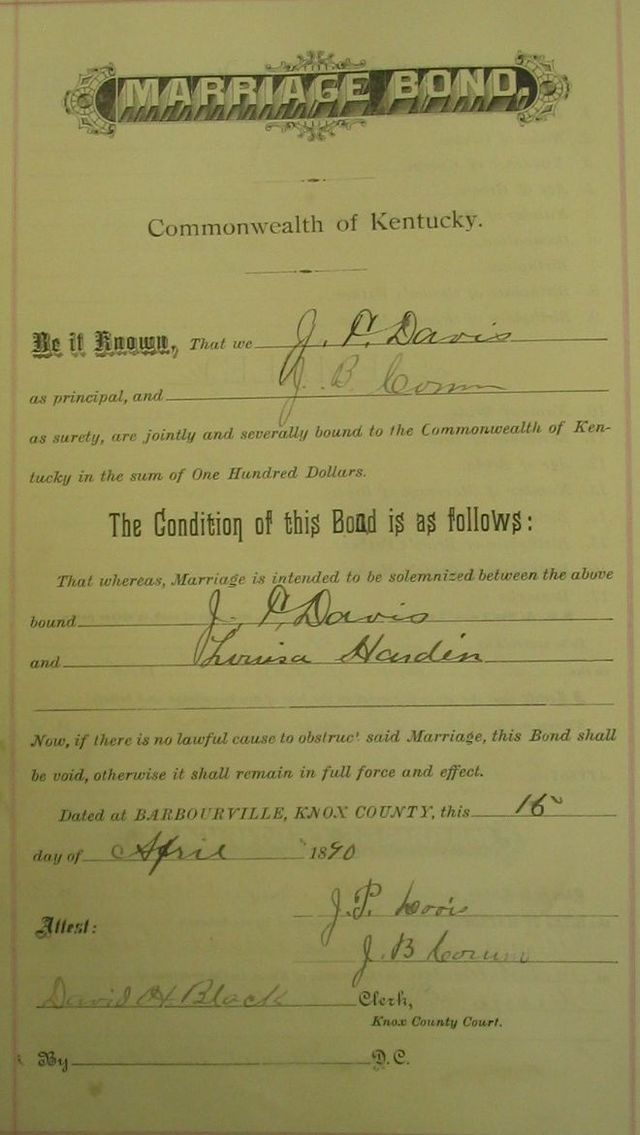 MARRIAGE BOND.
Commonwealth of Kentucky.
Be it Known, That we J. P. Davis
as principal, and J. B. Corum
as surety, are jointly and severally bound to the Commonwealth of Ken-
tucky in the sum of One Hundred Dollars.
The Condition of this Bond is as follows:
That whereas, Marriage is intended to be solemnized between the above
bound J. P. Davis
and Louisa Hardin
Now, if there is no lawful cause to obstruct said Marriage, this Bond shall
be void, otherwise it shall remain in full force and effect.
Dated at BARBOURVILLE, KNOX COUNTY, this 16
day of April 1890
J. P.
Attest:
J. B Corum
David H. Black Clerk,
Knox County Court.
By D.C.